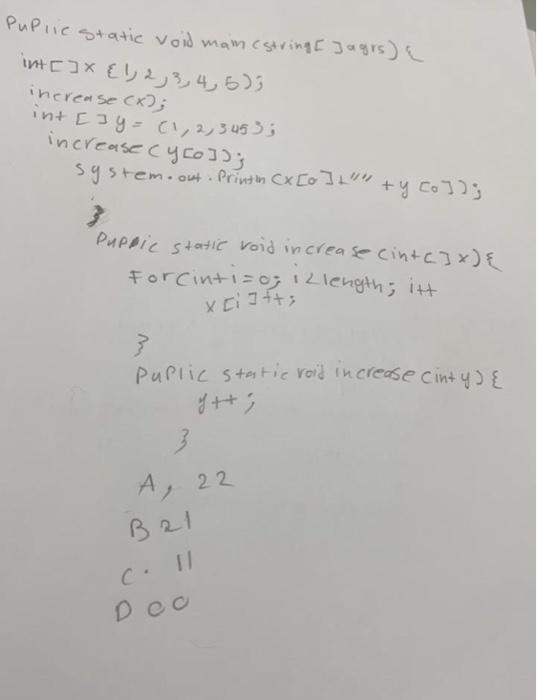 PuPlic static void main (string[ ]agrs) {
int[ ]x {1, 2, 3, 4, 5);
increase(x);
int [ ] y = (1, 2, 3 4 5);
increase( y[0]);
system.out.Println (x[0]+"" + y [0]);
}
PuPlic static void increase (int[ ]x){
For(int i=0; i<length; i++
x[i]++;
}
PuPlic static void increase (int y) {
y++;
}
A, 22
B 21
C. 11
D 00